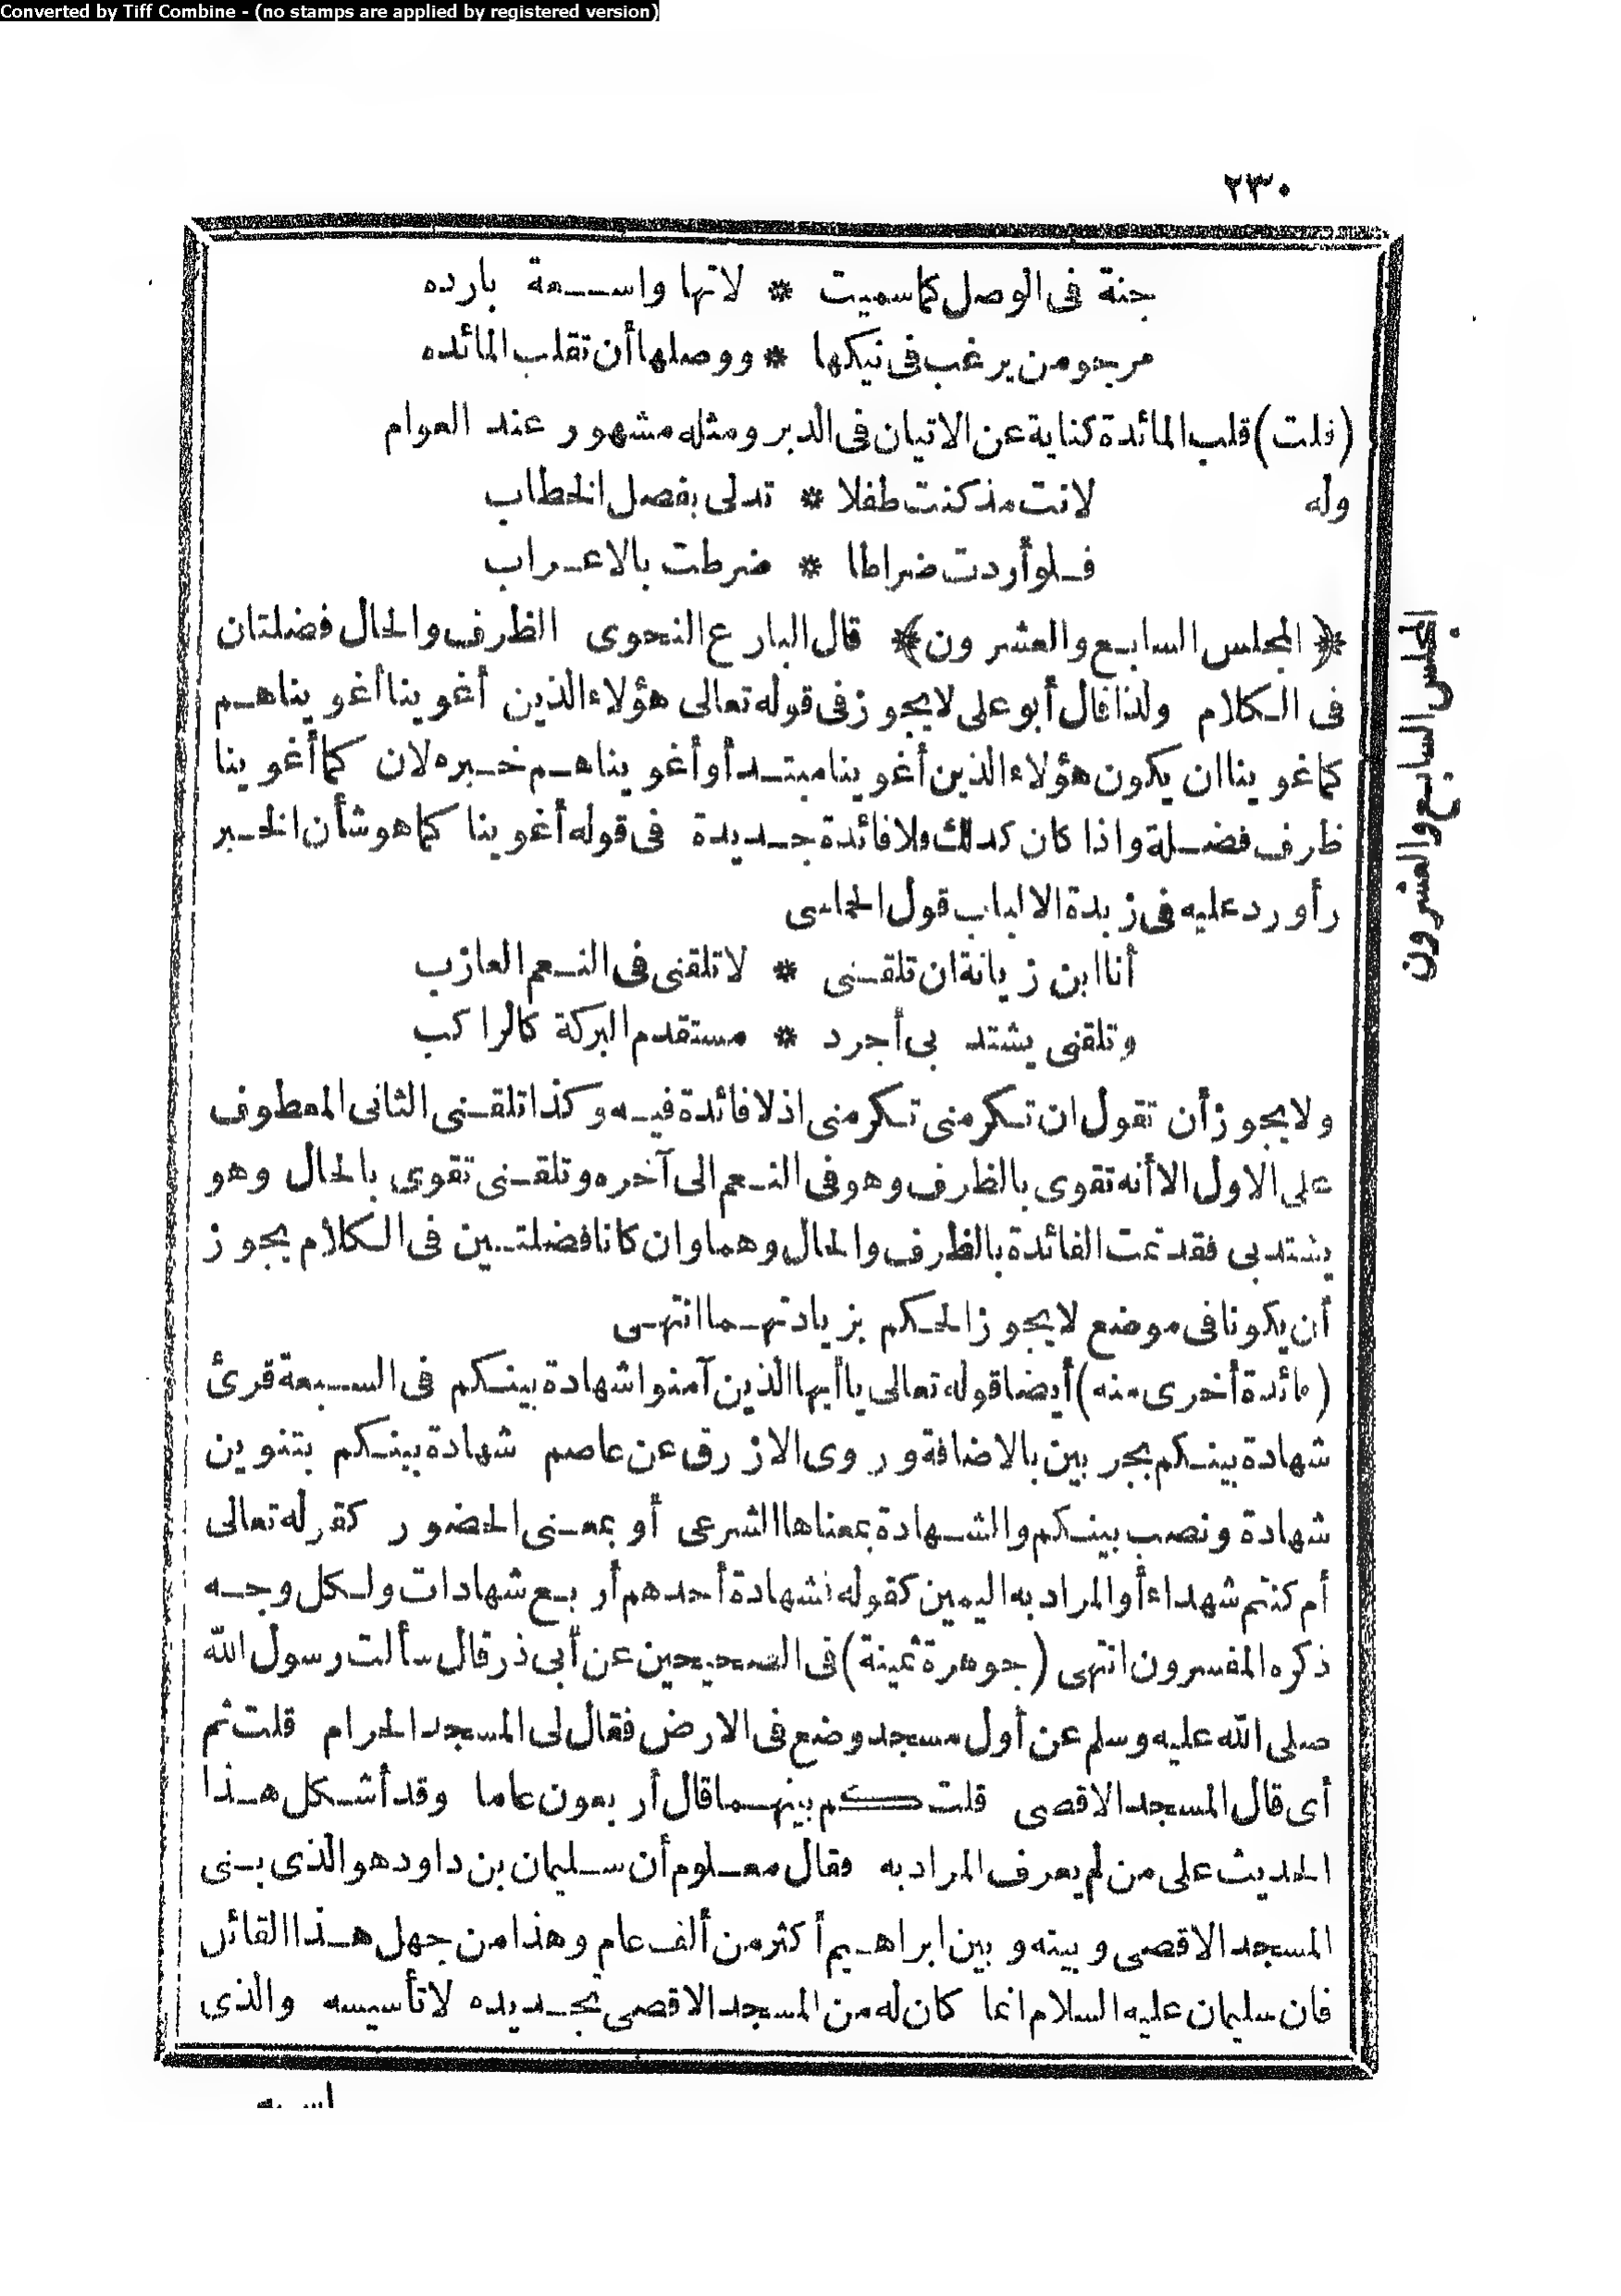 Converted by Tiff Combine - (no stamps are applied by registered version)
٢٣٠
جنة فى الوصل كما سميت * لانها واسعة بارده
مرجو من يرغب فى نيكها * ووصلها أن تقلب المائده
(قلت) قلب المائدة كناية عن الاتيان فى الدبر ومثله مشهور عند العوام
وله لانت مذ كنت طفلا * تدلى بفصل الخطاب
فلو أردت ضراطا * ضرطت بالاعراب
﴿المجلس السابع والعشرون﴾ قال البارع النحوى الظرف والحال فضلتان
فى الكلام ولذا قال أبو على لا يجوز فى قوله تعالى هؤلاء الذين أغوينا أغويناهم
كما غوينا ان يكون هؤلاء الذين أغوينا مبتدأ وأغويناهم خبره لان كما أغوينا
ظرف فضلة واذا كان كذلك فلا فائدة جديدة فى قوله أغوينا كما هو شأن الخبر
وأورد عليه فى زبدة الالباب قول الحماسى
أنا ابن زيانة ان تلقنى * لا تلقنى فى النعم العازب
وتلقنى يشتد بى أجرد * مستقدم البركة كالراكب
ولا يجوز أن تقول ان تكرمنى تكرمنى اذ لا فائدة فيه وكذا تلقنى الثانى المعطوف
على الاول الا أنه تقوى بالظرف وهو فى النعم الى آخره وتلقنى تقوى بالحال وهو
يشتد بى فقد تمت الفائدة بالظرف والحال وهما وان كانا فضلتين فى الكلام يجوز
أن يكونا فى موضع لا يجوز الحكم بزيادتهما انتهى
(مائدة أخرى منه) أيضا قوله تعالى يا أيها الذين آمنوا شهادة بينكم فى السبعة قرئ
شهادة بينكم بجر بين بالاضافة وروى الازرق عن عاصم شهادة بينكم بتنوين
شهادة ونصب بينكم والشهادة بمعناها الشرعى أو بمعنى الحضور كقوله تعالى
أم كنتم شهداء أو المراد به اليمين كقوله فشهادة أحدهم أربع شهادات ولكل وجه
ذكره المفسرون انتهى (جوهرة ثمينة) فى الصحيحين عن أبى ذر قال سألت رسول الله
صلى الله عليه وسلم عن أول مسجد وضع فى الارض فقال لى المسجد الحرام قلت ثم
أى قال المسجد الاقصى قلت كم بينهما قال أربعون عاما وقد أشكل هذا
الحديث على من لم يعرف المراد به فقال معلوم أن سليمان بن داود هو الذى بنى
المسجد الاقصى وبينه وبين ابراهيم أكثر من ألف عام وهذا من جهل هذا القائل
فان سليمان عليه السلام انما كان له من المسجد الاقصى تجديده لا تأسيسه والذى
المجلس السابع والعشرون